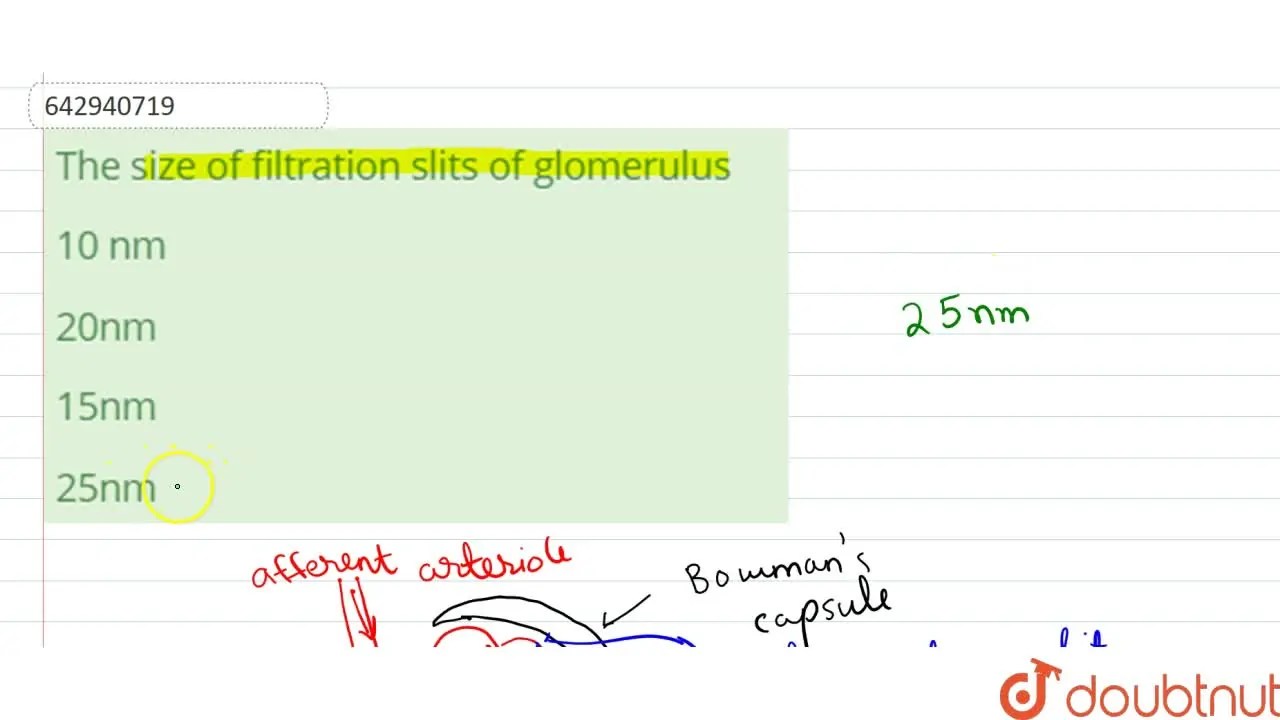 642940719
The size of filtration slits of glomerulus
10 nm
20nm
25nm
15nm
25nm
afferent arteriole
Bowman's
capsule
doubtnut